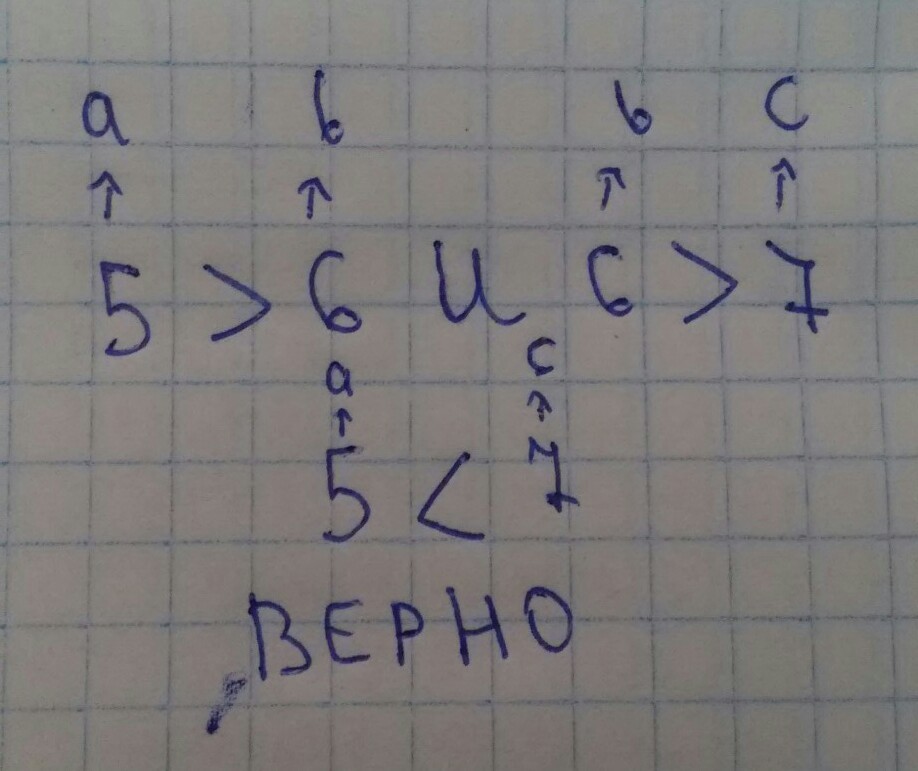 a b b c
↑ ↑ ↑ ↑
5 > 6 и 6 > 7
a c
↑ ↑
5 < 7
ВЕРНО